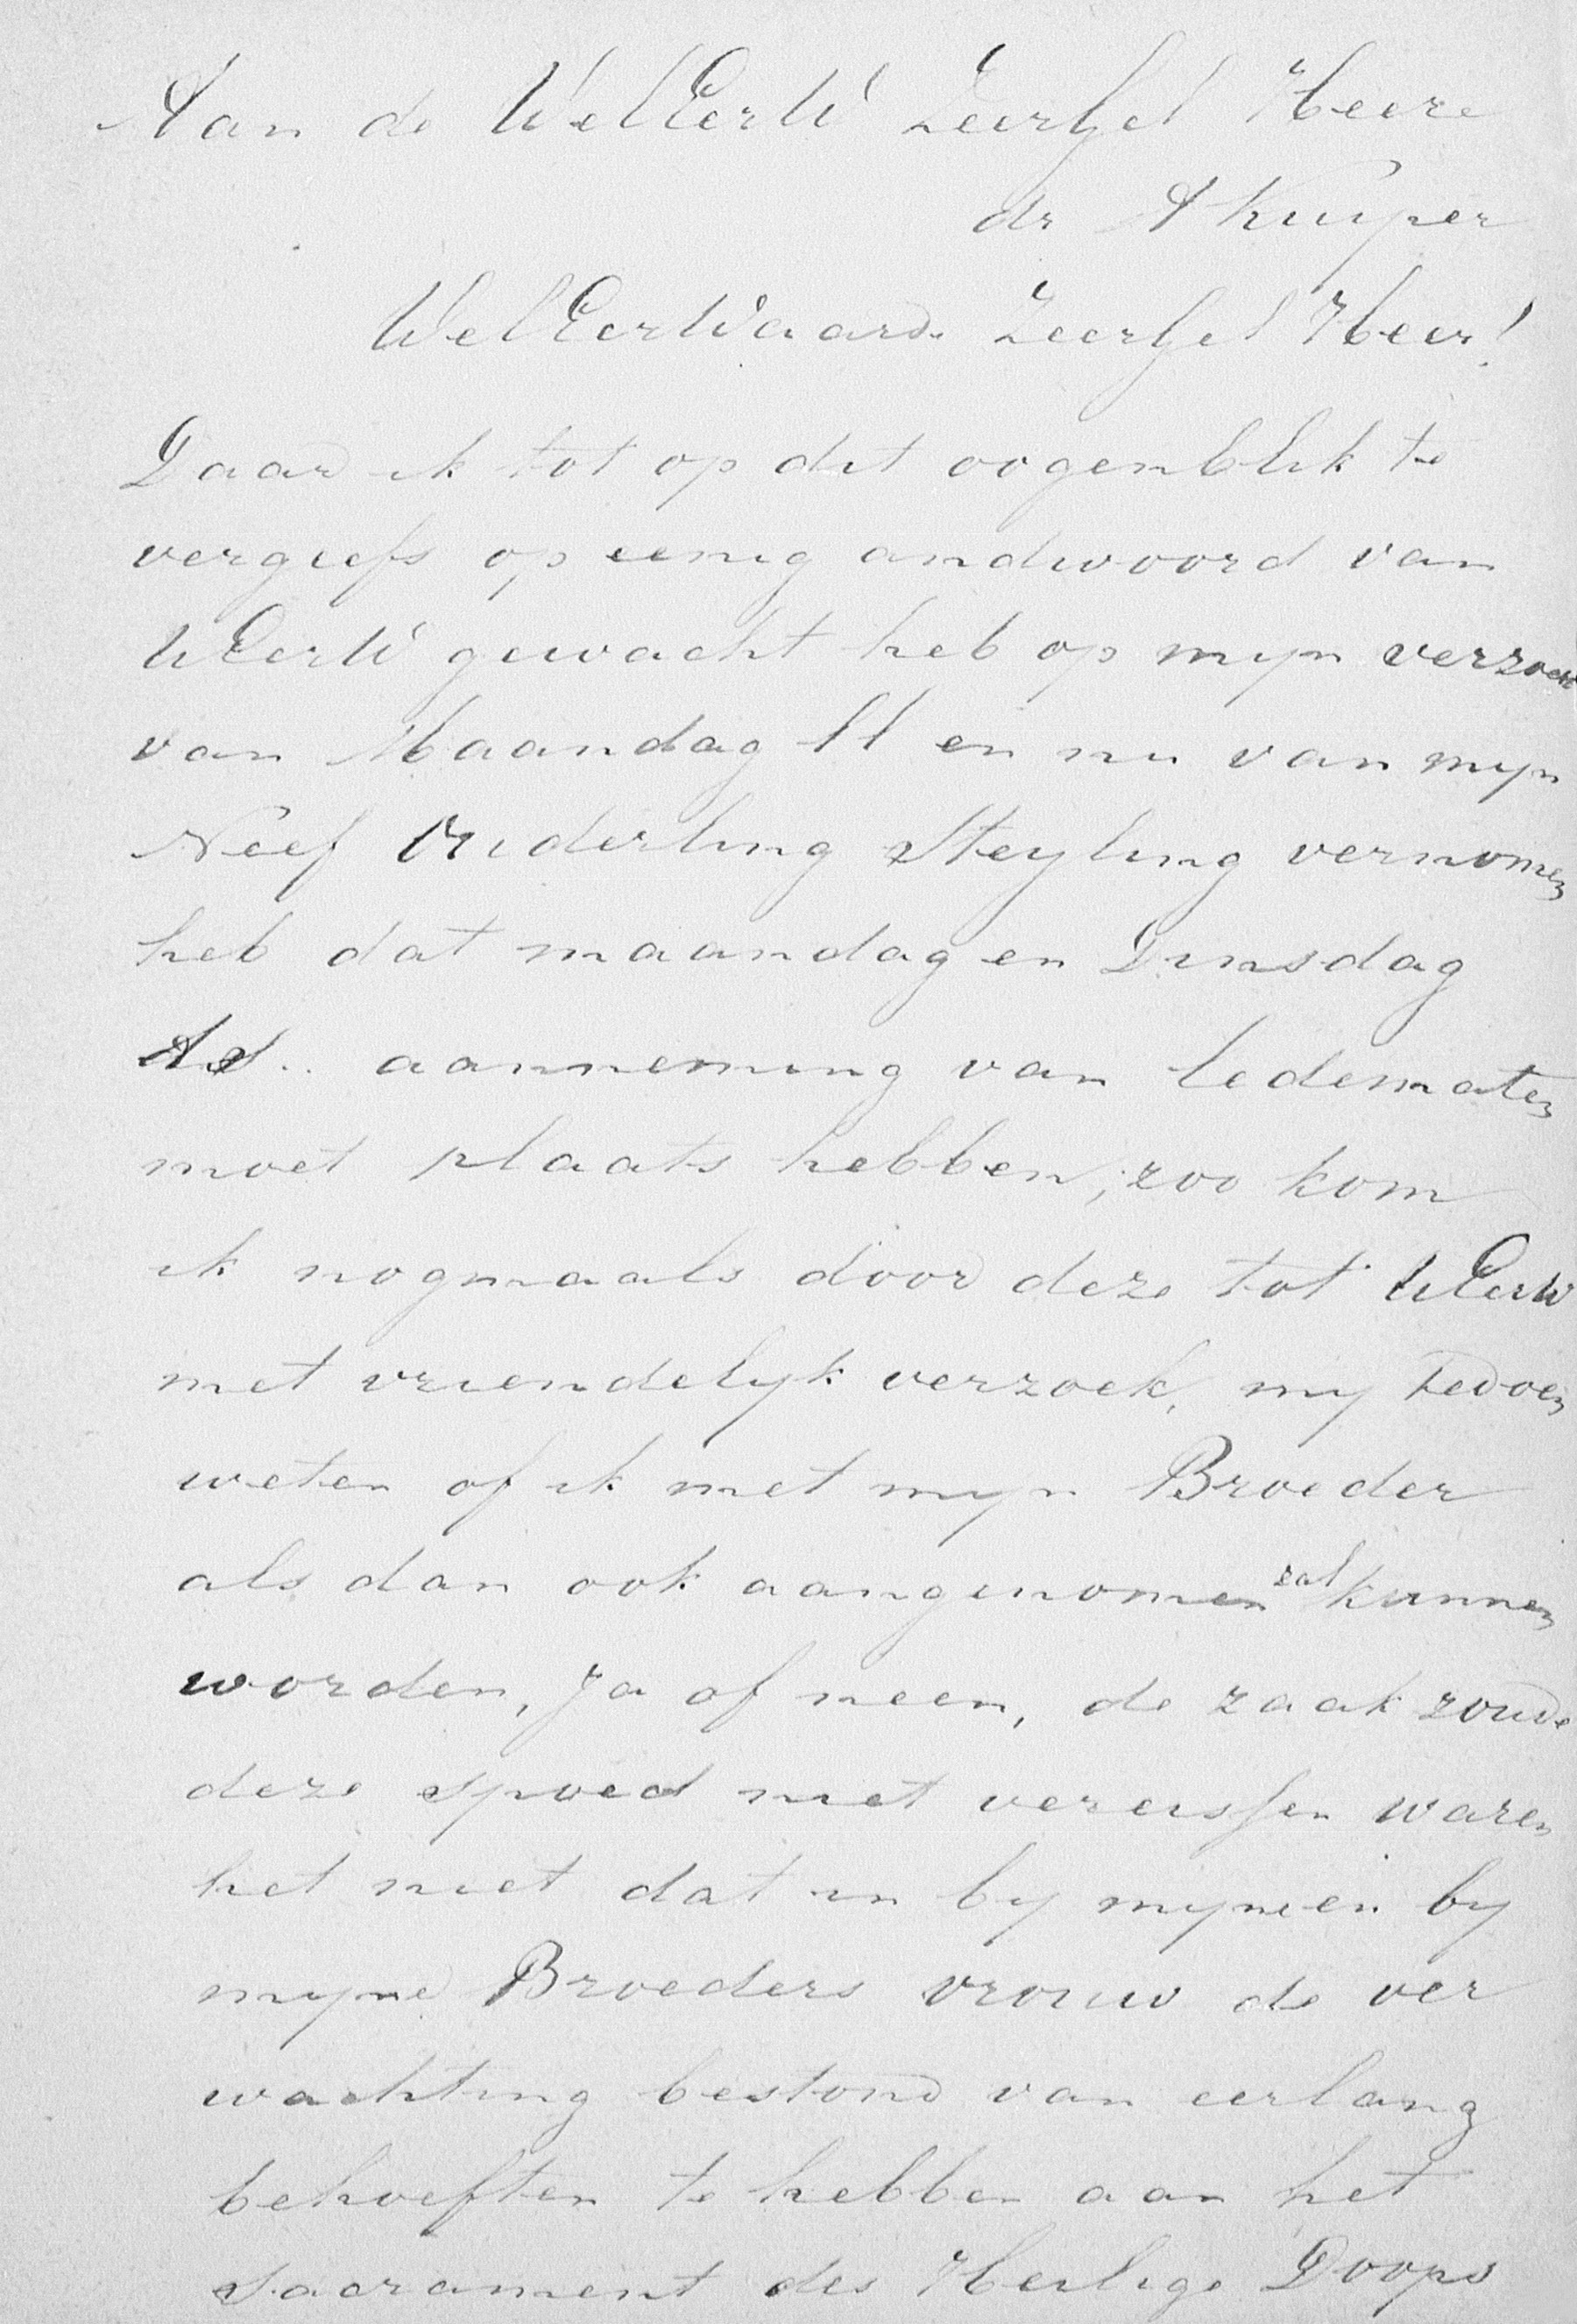 Aan de WelEerW ZeerGel Heere
dr A Kuiper
WelEerWaarde ZeerGel Heer!
Daar ik tot op dit oogenblik te
vergeefs op eenig andwoord van
UEerW gewacht heb op myn verzoek
van Maandag ll en nu van myn
Neef Ouderling Steyling vernomen
heb dat maandag en Dinsdag
aanneming van ledematen
moet plaats hebben, zoo kom
ik nogmaals door deze tot UEerW
met vriendelyk verzoek, my te doen
weten of ik met myn Broeder
als dan ook aangenomen zal kunnen
worden, Ja of neen, de zaak zoude
deze spoed niet vereissen waren
het niet dat en by myne en by
myne Broeders vrouw de ver
wachting bestond van eerlang
behoeften te hebben aan het
sacrament des Heilige Doops